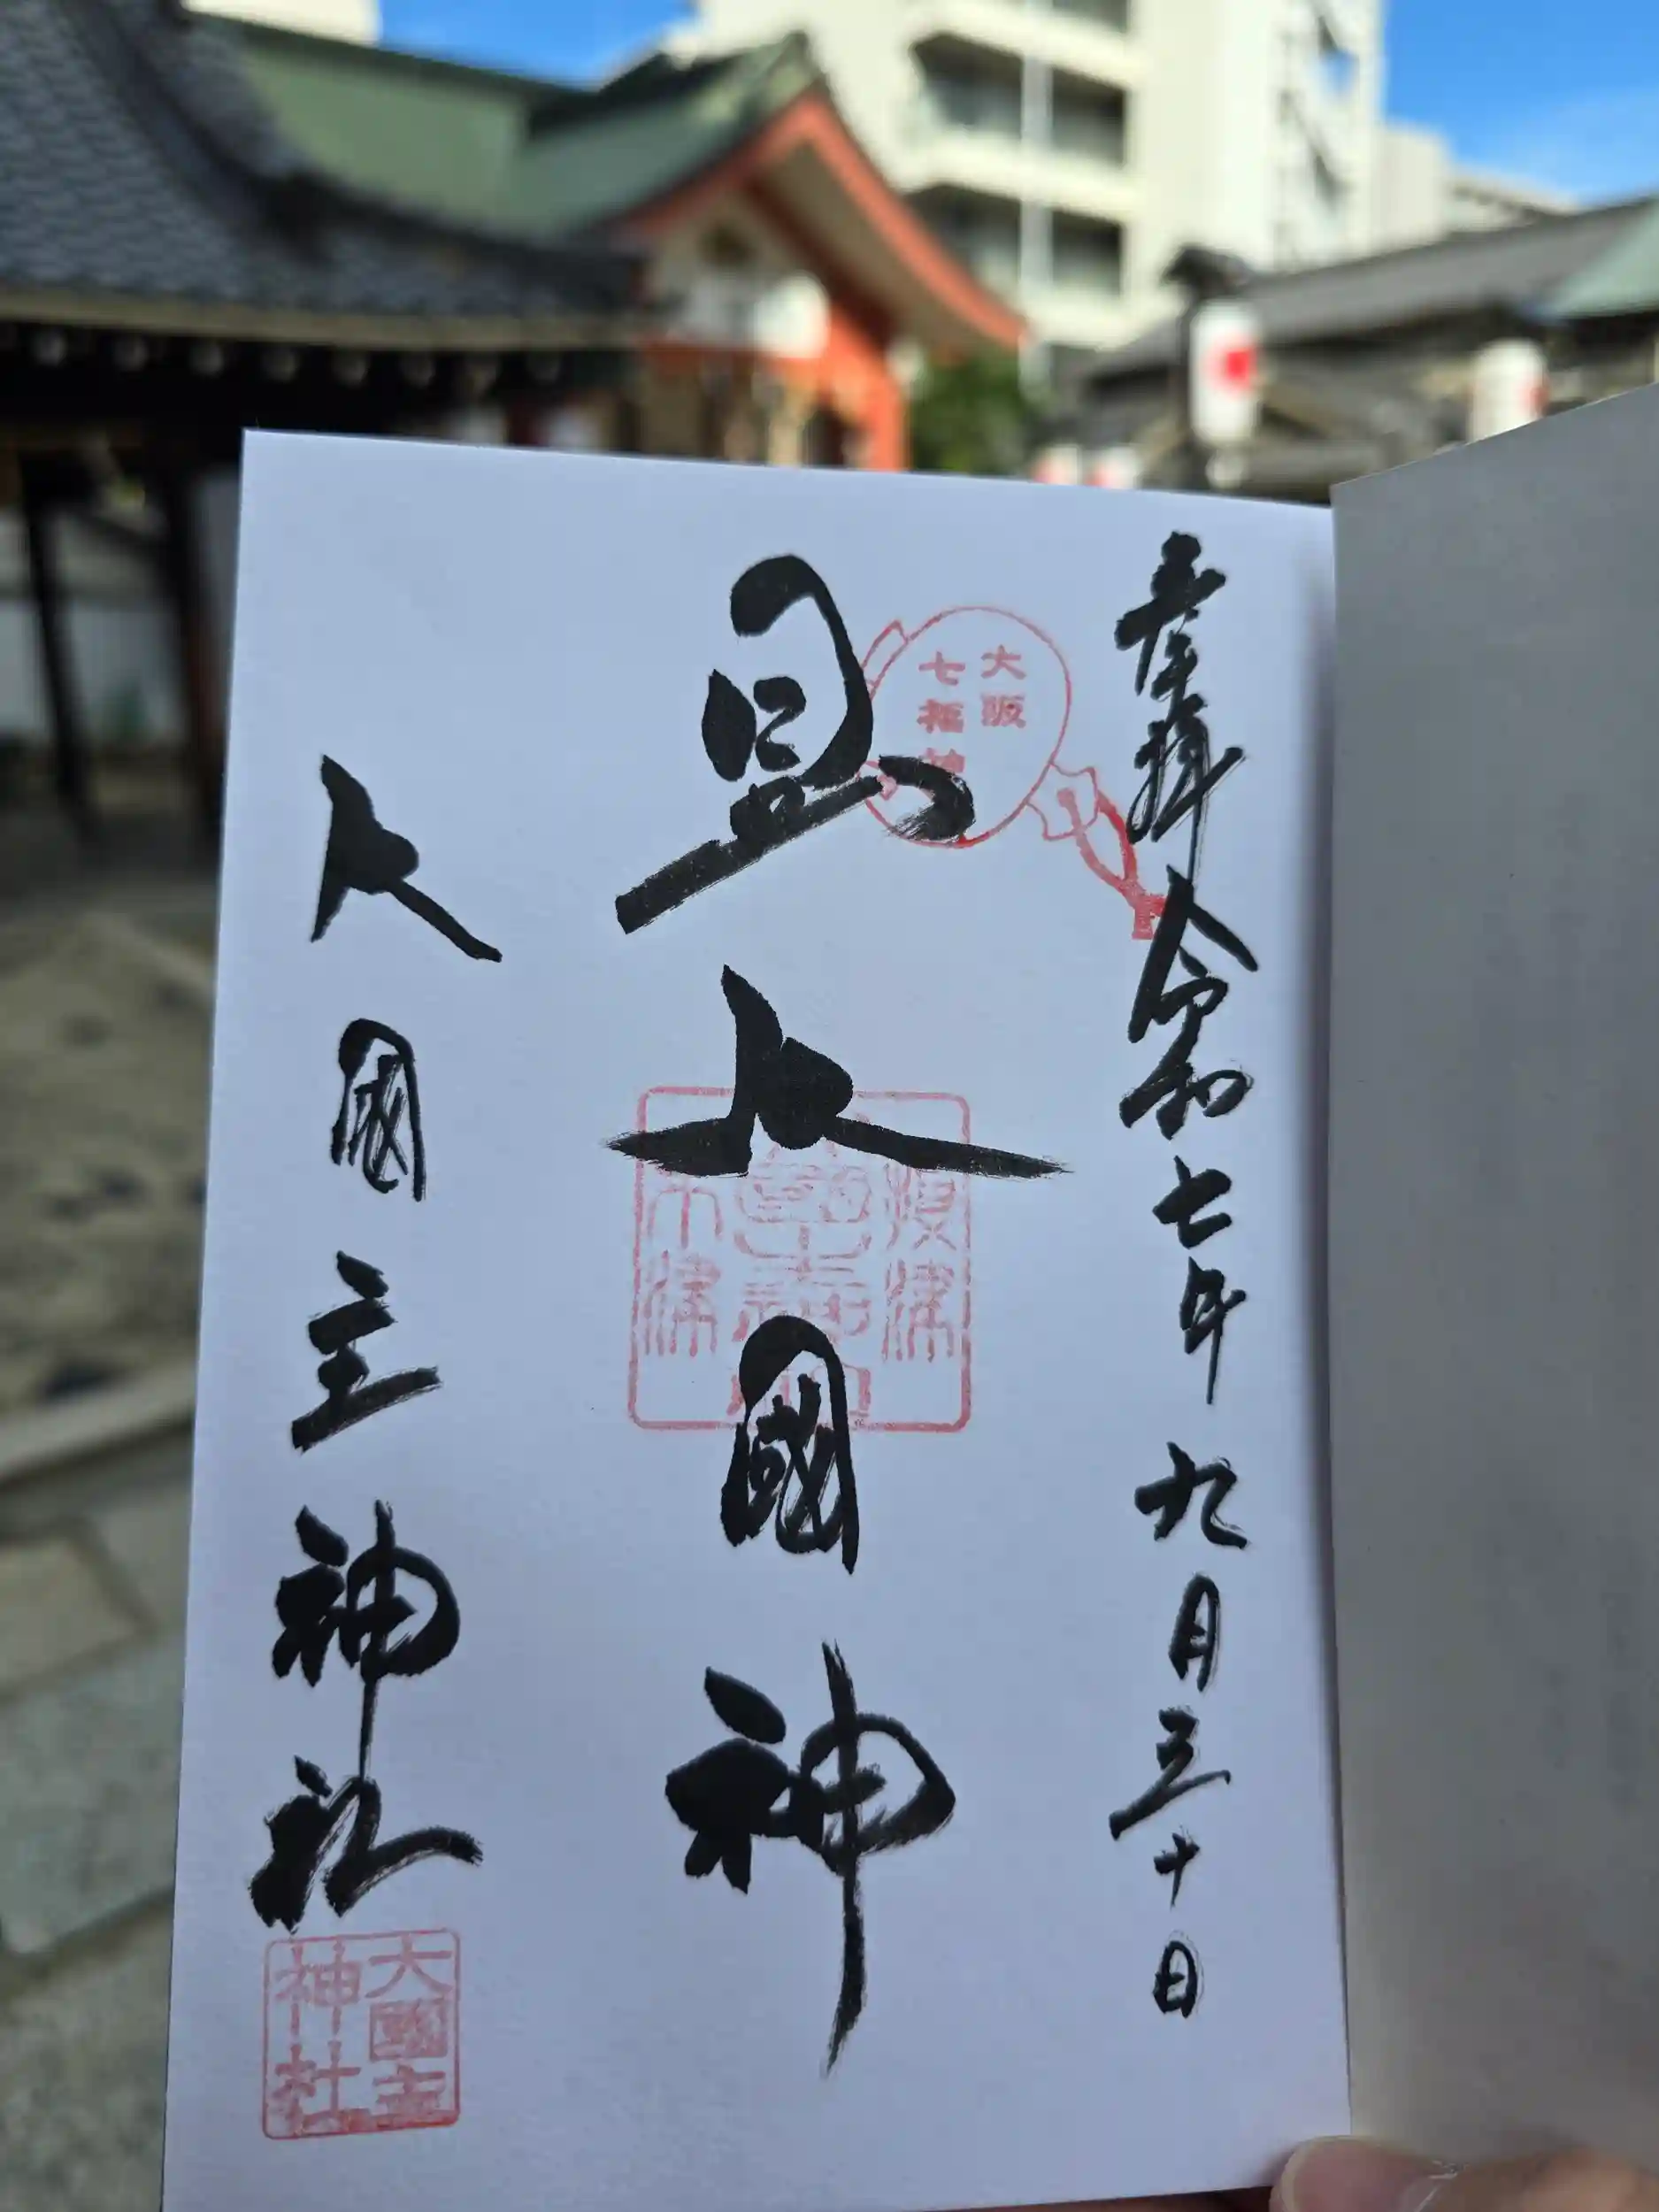 奉拝 令和七年九月三十日
大阪
七福神
日出大國神
大國主神社
大國主
神社